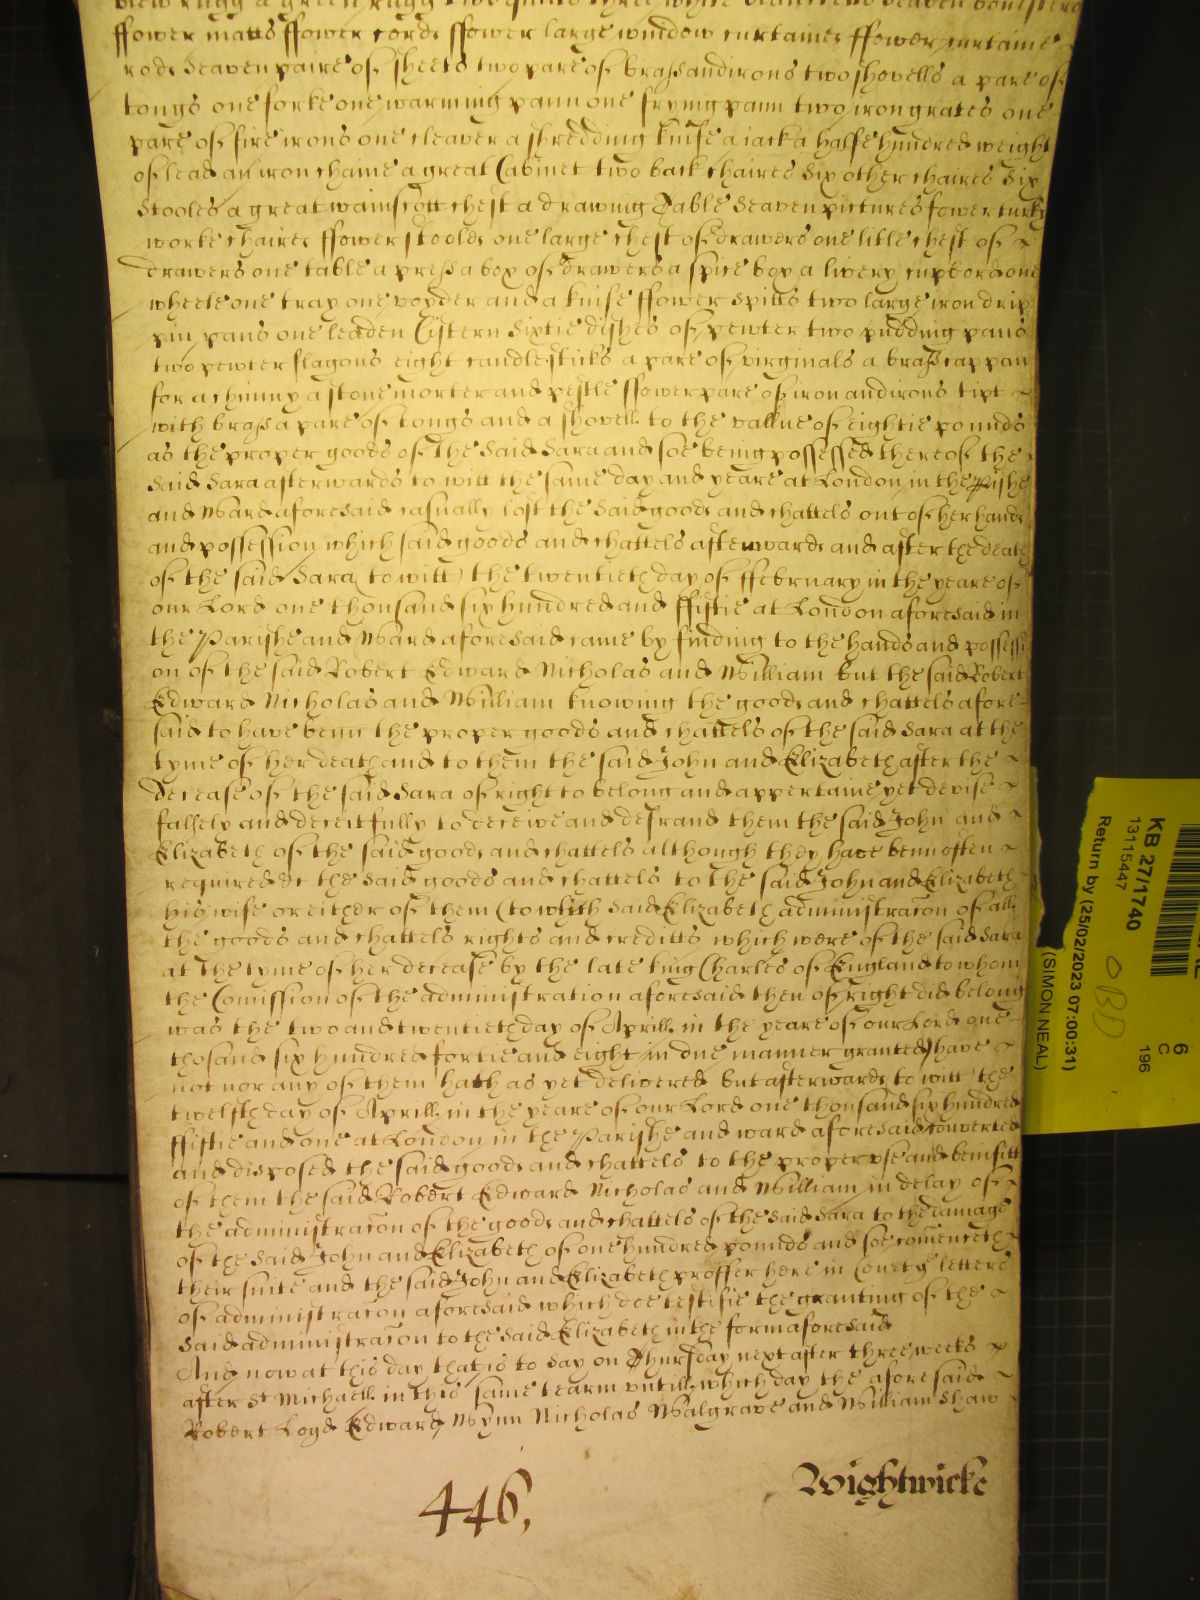 ffower matts ffower cords ffower large window curtaines ffower curtaine
rods Seaven paire of sheets two pare of brass andirons two shovells a pare of
tongs one forke one warming pann one frying pann two iron grates one
pare of fire irons one cleaver a shredding knife a jack a halfe hundred weight
of lead an iron chaine a great Cabinet two back chaires Six other chaires Six
Stooles a great wainscott chest a drawing Table Seaven pictures fower turky
worke chaires ffower stooles one large chest of drawers one litle chest of
drawers one table a press a box of drawers a spice box a livery cupbord one
wheele one tray one voyder and a knife ffower Spitts two large iron drip
pin pans one leaden Cistern Sixtie dishes of pewter two pudding pans
two pewter flagons eight candlesticks a pare of virginals a brass cappan
for a chimny a stone morter and pestle ffower pare of iron andirons tipt
with brass a pare of tongs and a shovell to the vallue of eightie pounds
as the proper goods of the said Sara and soe being possessed thereof the
Said Sara afterwards to witt the same day and yeare at London in the Pishe
and Ward aforesaid casually lost the Said goods and chattels out of her hands
and possession which said goods and chattels afterwards and after the death
of the said Sara to witt the twentieth day of ffebruary in the yeare of
our Lord one thousand six hundred and ffiftie at London aforesaid in
the Parishe and Ward aforesaid came by finding to the hands and possessi
on of the said Robert Edward Nicholas and William but the said Robert
Edward Nicholas and William knowing the goods and chattels afore
said to have benn the proper goods and chattels of the said Sara at the
tyme of her death and to them the said John and Elizabeth after the
decease of the said Sara of right to belong and appertaine yet devise
falsely and deceitfully to deceive and defraud them the said John and
Elizabeth of the said goods and chattels although they have benn often
required &c the Said goods and chattels to the said John and Elizabeth
his wife or either of them (to which Said Elizabeth administracon of all
the goods and chattels rights and creditts which were of the said Sara
at the tyme of her decease by the late king Charles of England to whom
the Comission of the administration aforesaid then of right did belong
was the two and twentieth day of Aprill in the yeare of our Lord one
thosand six hundred fortie and eight in due manner granted) have
not nor any of them hath as yet delivered but afterwards to witt the
twelfth day of Aprill in the yeare of our Lord one thousand six hundred
ffiftie and one at London in the Parishe and ward aforesaid converted
and disposed the said goods and chattels to the proper use and benifitt
of them the said Robert Edward Nicholas and William in delay of
the administracon of the goods and chattels of the Said Sara to the damage
of the Said John and Elizabeth of one hundred pounds and soe comenceth
their suite and the said John and Elizabeth proffer here in Court ye letters
of administracon aforesaid which doe testifie the granting of the
Said administracon to the Said Elizabeth in the form aforesaid
And now at this day that is to Say on Thursday next after three weeks
after St Michaell in this same tearm untill which day the aforesaid
Robert Logd Edward Wynn Nicholas Walgrave and William Shaw
446,
Wightwicke
KB 27/1740
13115447
Return by (25/02/2023 07:00:31)
(SIMON NEAL)
6
C
196